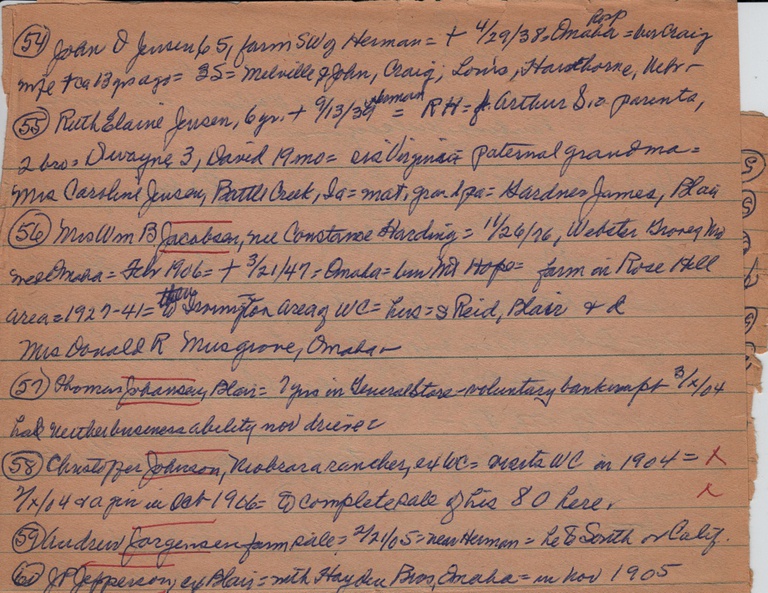 (54) John D Jensen 65, farm SW of Herman = + 4/29/38 = Omaha Hosp = bur Craig
wife + ca 13 yrs ago = 3S = Melville & John, Craig; Louis, Hawthorne, Nebr -
(55) Ruth Elaine Jensen, 6 yr. + 9/13/39 Herman = RH = f. Arthur S. = parents,
2 bro = Dwayne 3, David 19 mo = sis Virginia = paternal grandma =
Mrs Caroline Jensen, Battle Creek, Ia = mat. grandpa = Gardner James, Blair
(56) Mrs Wm B Jacobsen, nee Constance Harding = 11/26/76, Webster Groves Mo
Omaha = Feb 1906 = + 3/21/47 = Omaha = bur Mt Hope = farm in Rose Hill
area = 1927-41 = then to Irvington area of WC = hus = s Reid, Blair & d
Mrs Donald R Musgrove, Omaha -
(57) Thomas Johansen, Blair = 7 yrs in General Store - voluntary bankrupt 3/x/04
had neither business ability nor drive =
(58) Christoffer Johnson, Niobrara rancher, ex WC = visits WC in 1904 = X
/x/04 & again in Oct 1906 = to complete sale of his 80 here. X
(59) Andrew Jorgensen farm sale = 2/21/05 = near Herman = he to South or Calif.
(60) J P Jepperson, ex Blair = with Hayden Bros, Omaha = in Nov 1905